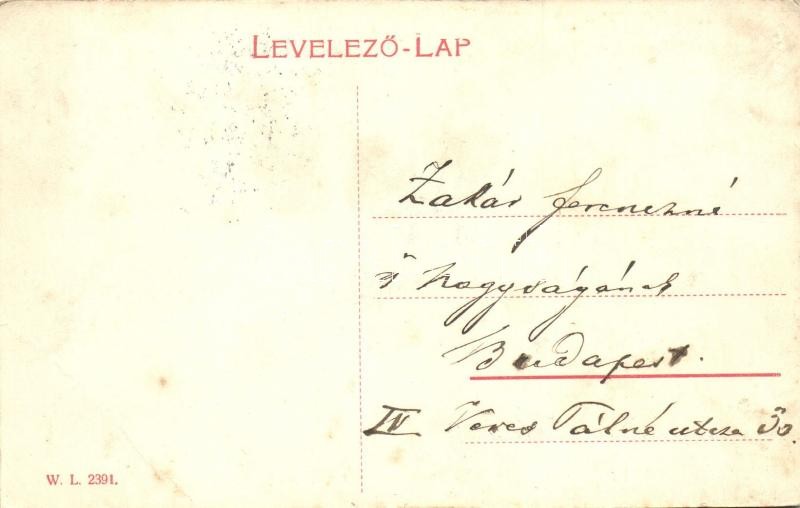 LEVELEZŐ-LAP
Zakár Ferenczné
ő Nagyságának
Budapest.
IV Veres Pálné utcza 30.
W. L. 2391.